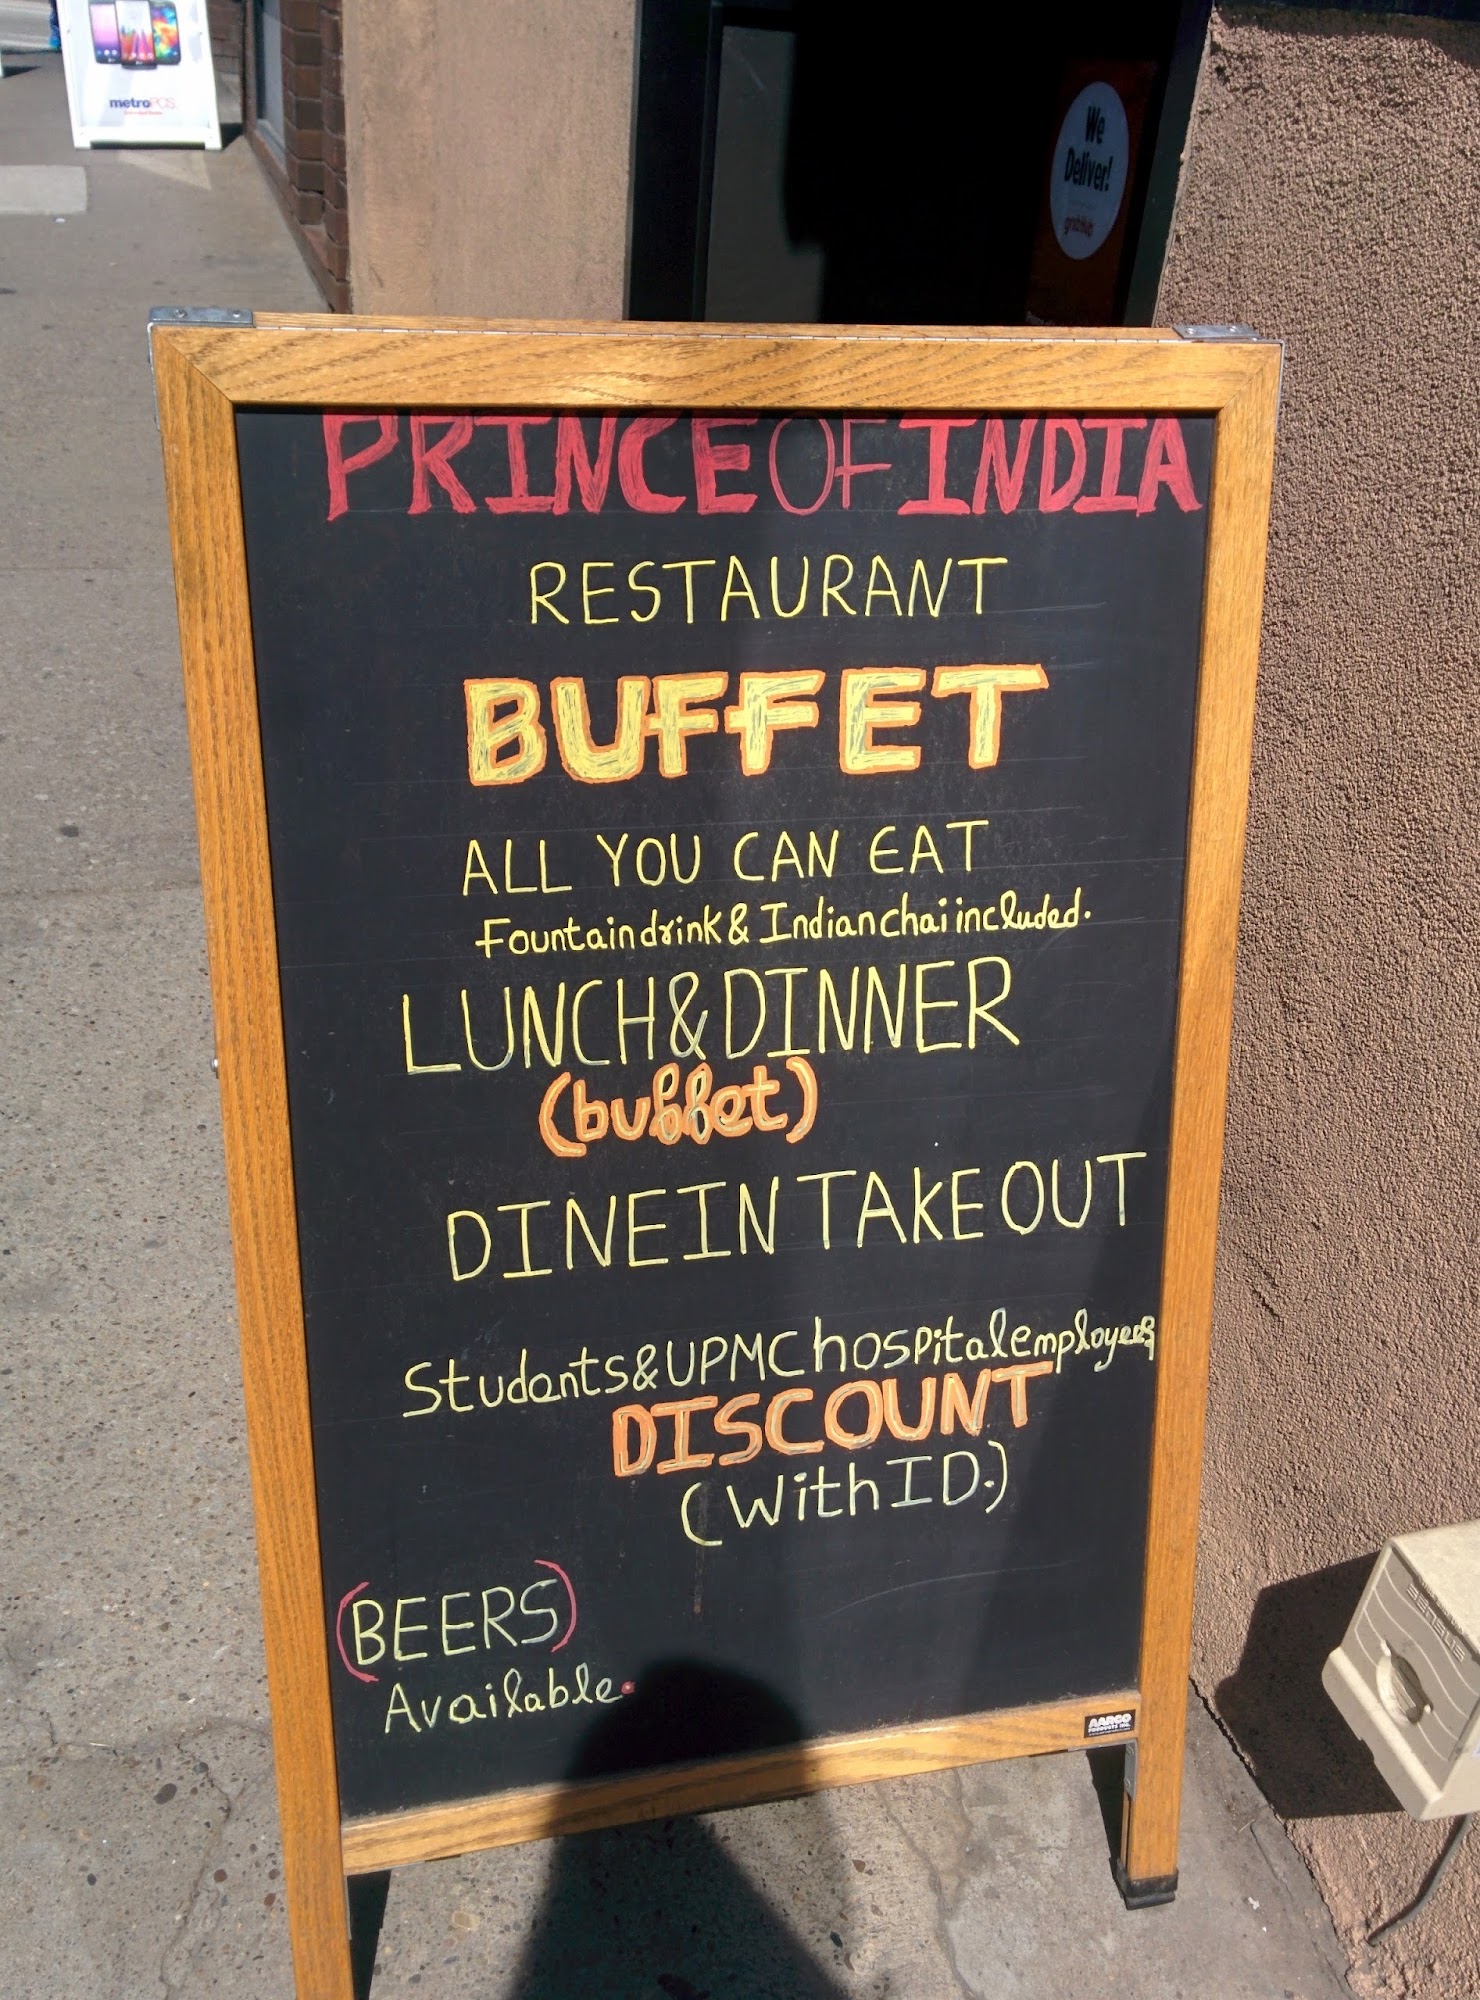 metroPCS.
We
Deliver!
grubHub
PRINCE OF INDIA
RESTAURANT
BUFFET
ALL YOU CAN EAT
Fountain drink & Indian chai included.
LUNCH & DINNER
(buffet)
DINE IN TAKE OUT
Students & UPMC hospital employees
DISCOUNT
(With ID.)
(BEERS)
Available.
AARCO
PRODUCTS INC.